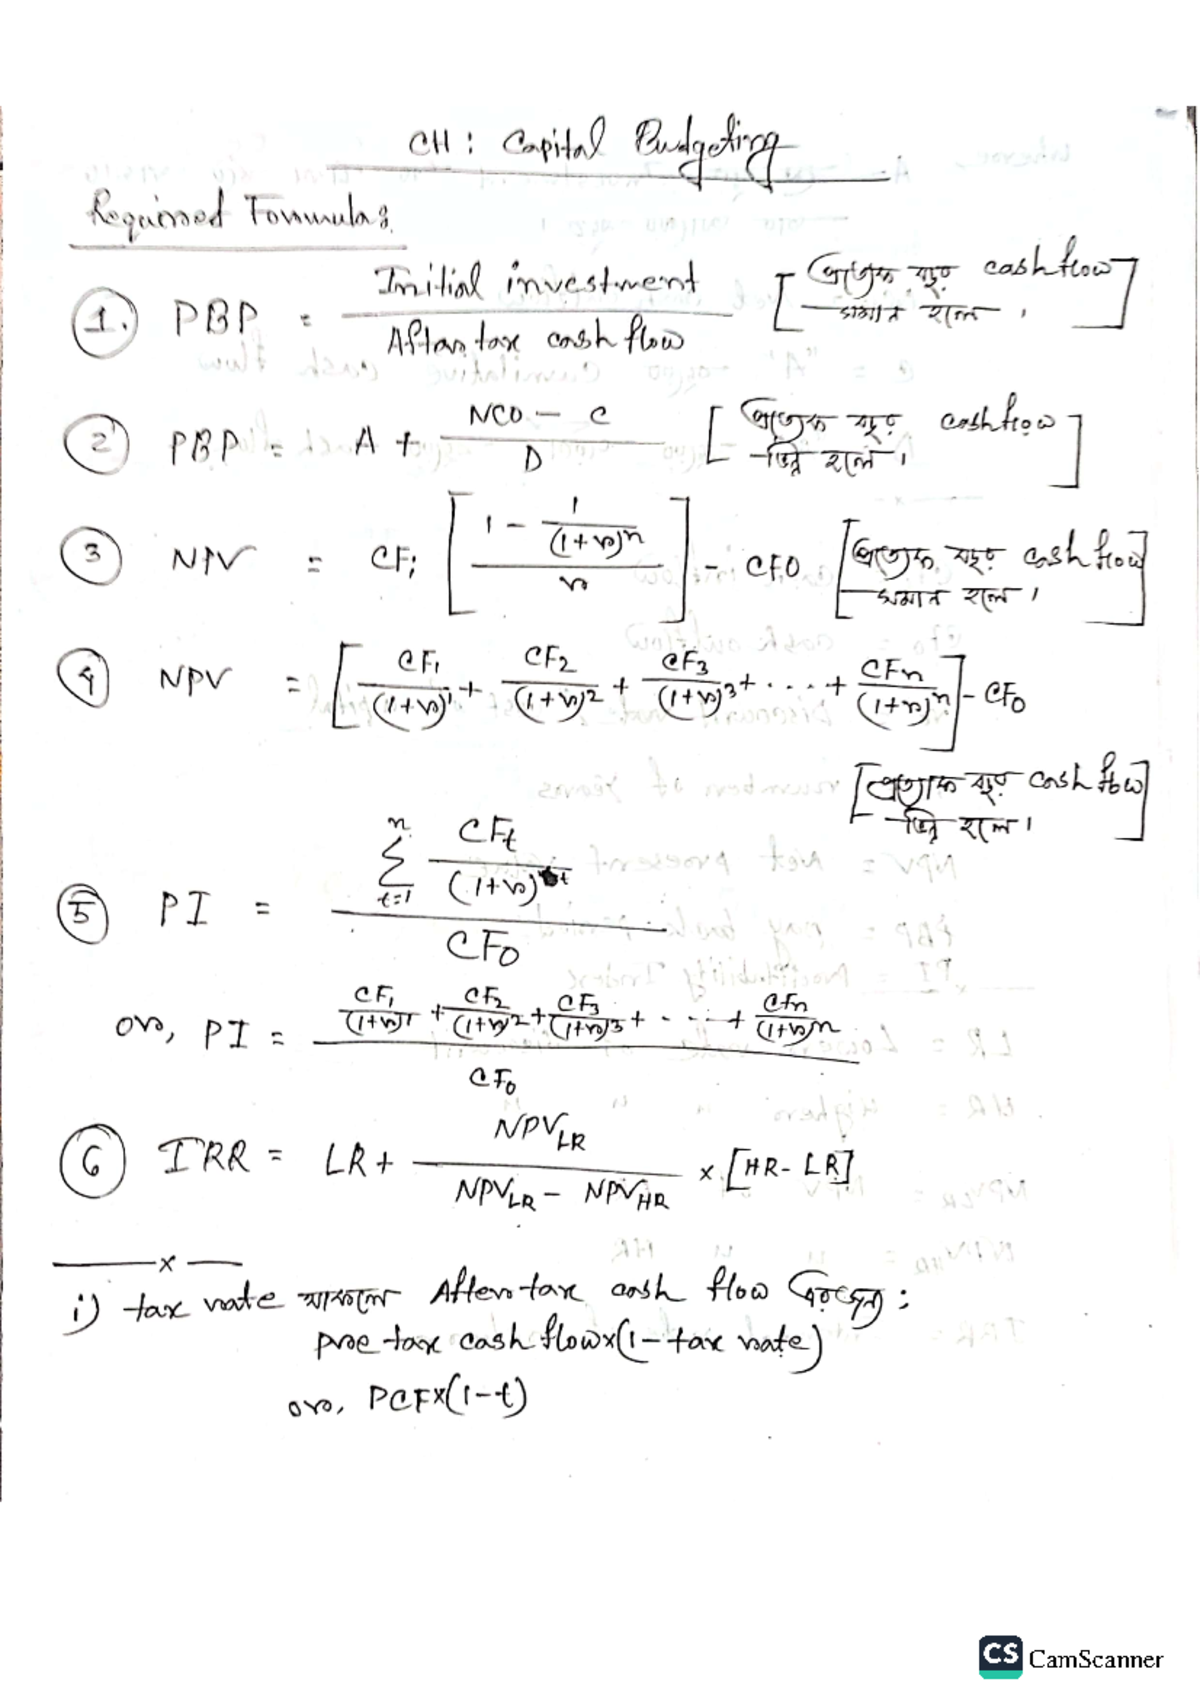 CH: Capital Budgeting
Required Formulas
1. PBP = Initial investment / After tax cash flow [প্রত্যেক বছর cash flow সমান হলে।]
2 PBP = A + (NCO - C) / D [প্রত্যেক বছর cash flow ভিন্ন হলে।]
3 NPV = CF; [(1 - 1/(1+r)^n) / r] - CFO [প্রত্যেক বছর cash flow সমান হলে।]
4 NPV = [CF1/(1+r)^1 + CF2/(1+r)^2 + CF3/(1+r)^3 + .... + CFn/(1+r)^n] - CFO
[প্রত্যেক বছর cash flow ভিন্ন হলে।]
5 PI = Σ t=1 n CFt/(1+r)^t / CFO
or, PI = (CF1/(1+r)^1 + CF2/(1+r)^2 + CF3/(1+r)^3 + .... + CFn/(1+r)^n) / CFO
6 IRR = LR + NPV_LR / (NPV_LR - NPV_HR) × [HR - LR]
x
i) tax rate থাকলে After tax cash flow :
pre tax cash flow×(1-tax rate)
or, PCF×(1-t)
CS CamScanner